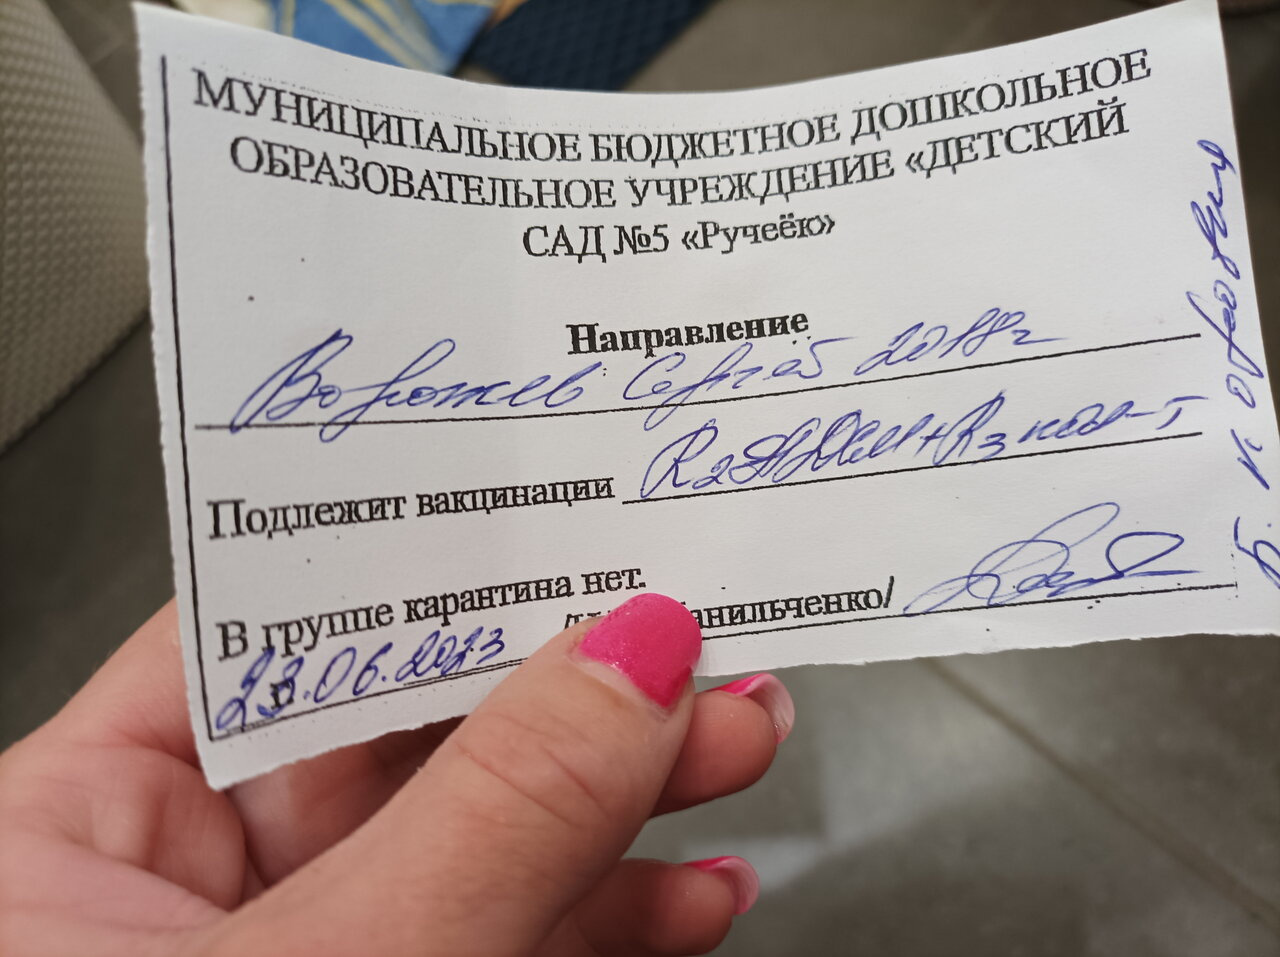 МУНИЦИПАЛЬНОЕ БЮДЖЕТНОЕ ДОШКОЛЬНОЕ
ОБРАЗОВАТЕЛЬНОЕ УЧРЕЖДЕНИЕ «ДЕТСКИЙ
САД №5 «Ручеёк»
Направление
Сергей 2018г
Подлежит вакцинации R2 АДСМ + R3
В группе карантина нет.
анильченко/
23.06.2023